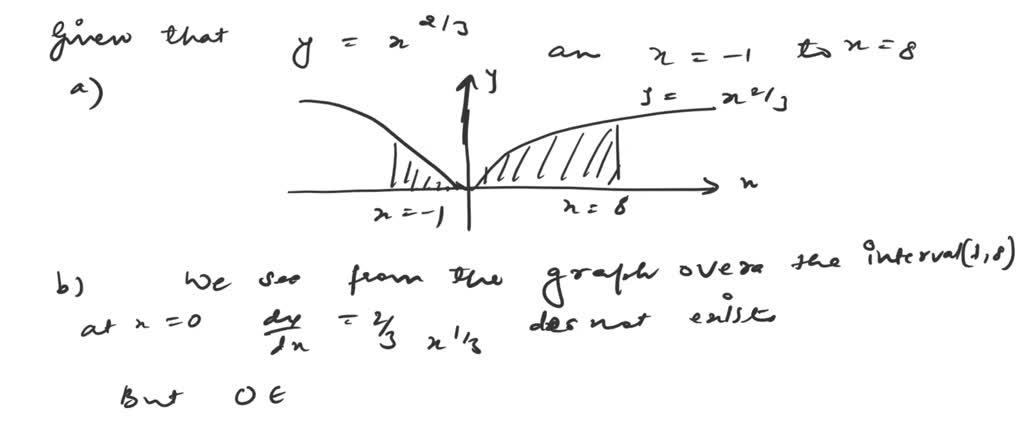 Given that y = x^2/3 on x = -1 to x = 8
a)
y
y = x^2/3
x
x = -1 x = 8
b) We see from the graph over the interval (1,8)
at x = 0 dy/dx = 2/3 x^1/3 does not exist
But 0 ∈